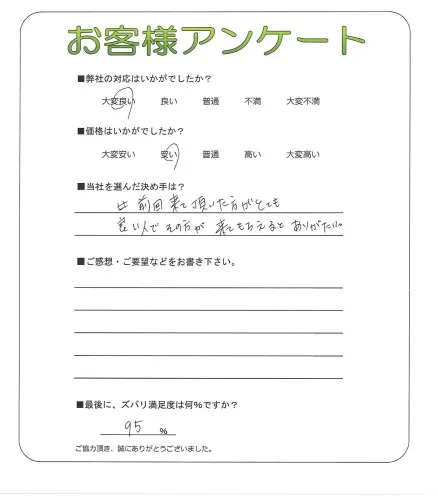 お客様アンケート
■弊社の対応はいかがでしたか？
大変良い 良い 普通 不満 大変不満
■価格はいかがでしたか？
大変安い 安い 普通 高い 大変高い
■当社を選んだ決め手は？
前回来て頂いた方がとても
良い人でその方が来てもらえるとありがたい。
■ご感想・ご要望などをお書き下さい。
■最後に、ズバリ満足度は何％ですか？
95 ％
ご協力頂き、誠にありがとうございました。